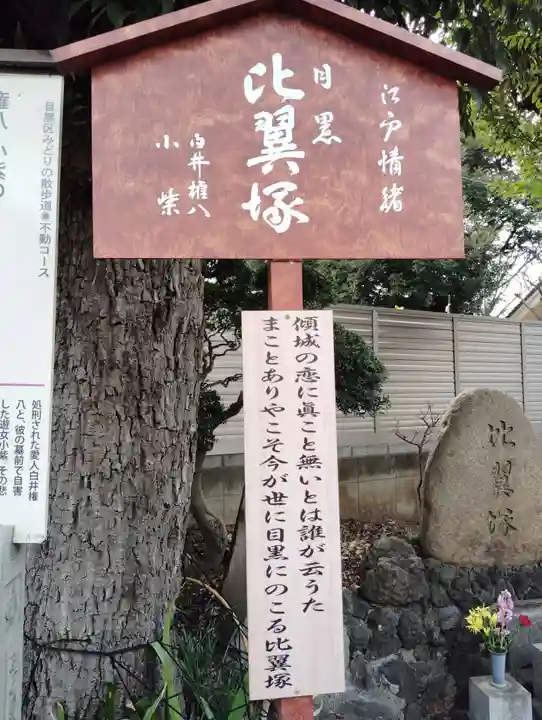 江戸情緒
目黒
比翼塚
白井権八
小紫
傾城の恋に真こと無いとは誰が云うた
まことありやこそ今が世に目黒にのこる比翼塚
比翼塚
目黒区みどりの散歩道●不動コース
処刑された愛人白井権
八と、彼の墓前で自害
した遊女小紫、その悲